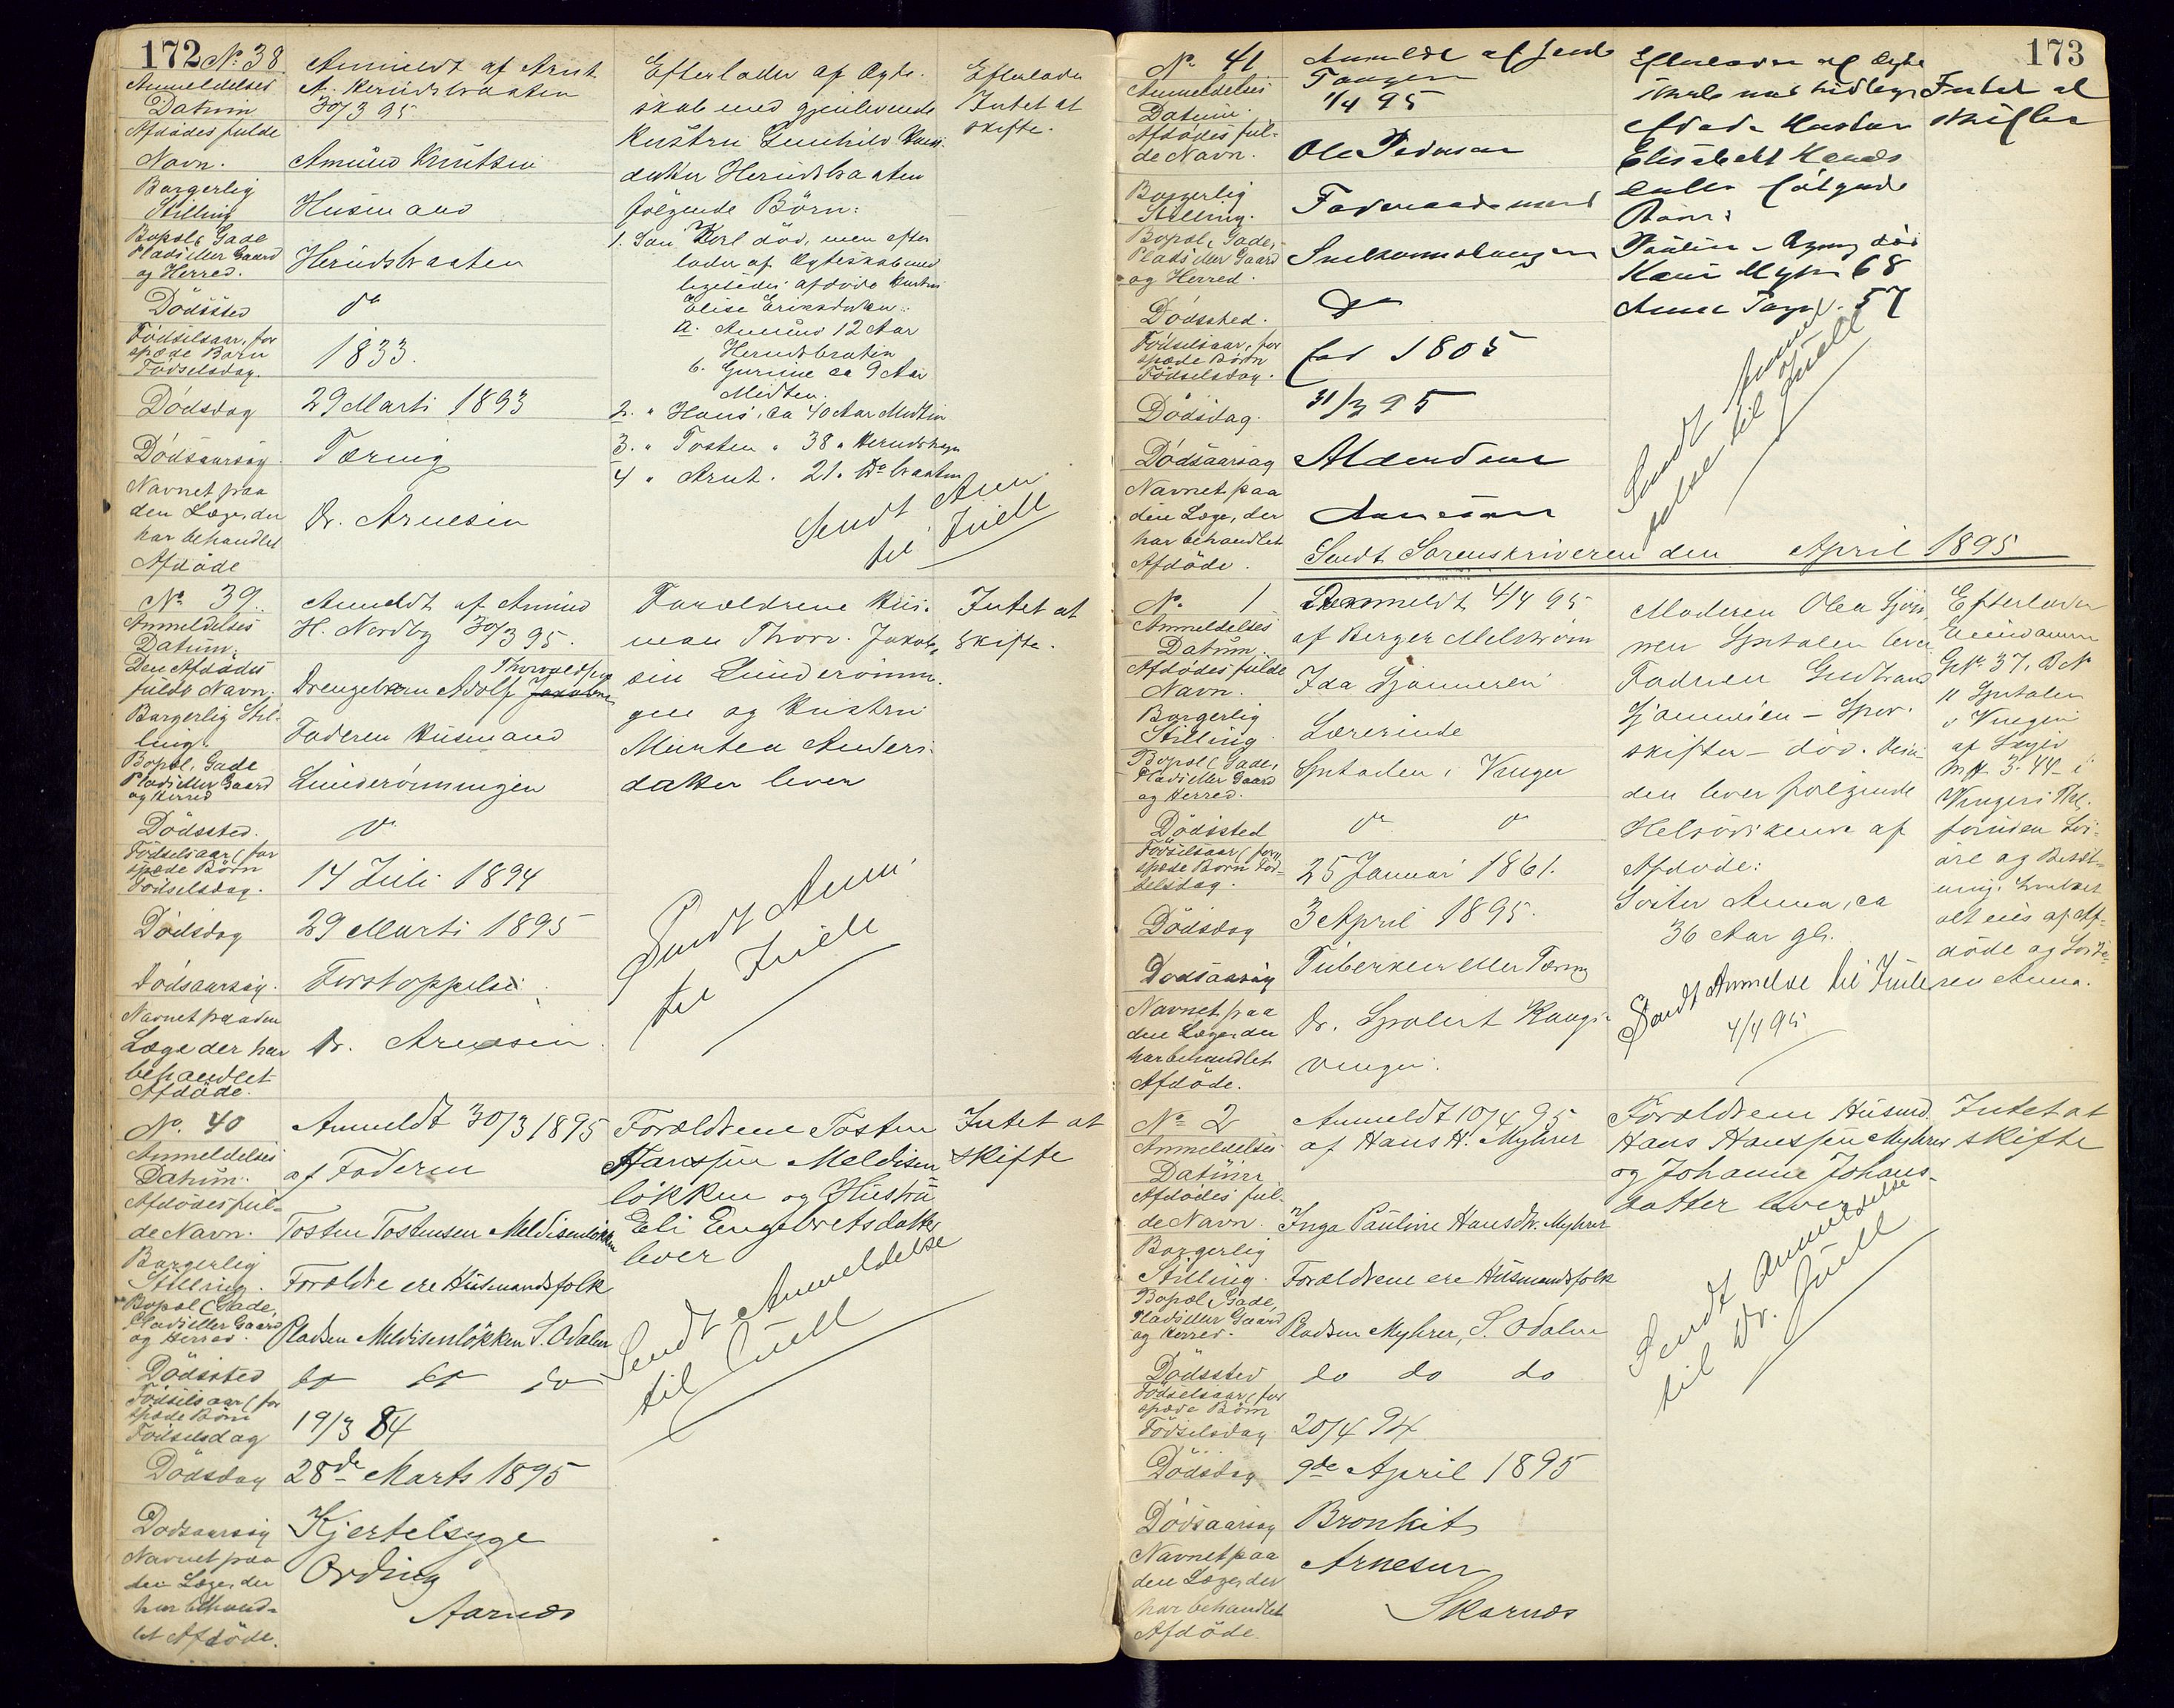 172 No. 38
Anmeldelses
Datum
Afdödes fulde
Navn.
Borgerlig
Stilling
Bopæl, Gade
Plads eller Gaard
og Herred.
Dödssted
Födselsaar, for
spæde Børn
Födselsdag.
Dödsdag
Dödsaarsag
Navnet paa
den Læge, der
har behandlet
Afdöde
Anmeldt af Arnt
30/3 95
Amund Knutsen
Husmand
Herudsbraaten
do
1833.
29 Marti 1893
Tæring
Dr. Arnesen
Efterlader af Ægte-
skab med gjenlevende
Hustru Gunhild
datter Herudsbraaten
følgende Börn:
1. Søn Karl död, men efter
lader af Ægteskab med
ligeledes afdöde Hustru
Elise Eriksdatter:
a. Amund 12 Aar
Herudsbraten
b. Gunine ca 9 Aar
2. " Hans, ca 40 Aar
3. " Tosten " 38 "
4 " Arnt. 21 " do braaten
Sendt Anm
til Juell
Efterlader
Intet at
skifte.
No. 39.
Anmeldelses
Datum.
Den Afdödes
fulde Navn.
Borgerlig Stil-
ling.
Bopæl, Gade
Plads eller Gaard
og Herred
Dödssted.
Födselsaar (for
spæde Börn
Födselsdag.
Dödsdag
Dödsaarsag.
Navnet paa den
Læge der har
behandlet
Afdöde.
Anmeldt af Amund
H. Nordby 30/3 95.
Thorvaldsen
Drengebarn Adolf Jakobsen
Faderen Husmand
Linderönningen
do
14 Juli 1894
29 Marti 1895
Forstoppelse
Dr. Arnesen
Forældrene Hus-
mand Thorv. Jakob-
sen Linderönnin-
gen og Hustru
Mathea Anders-
datter lever
Sendt Anm
til Juell
Intet at
skifte.
No. 40
Anmeldelses
Datum.
Afdödes ful-
de Navn.
Borgerlig
Stilling.
Bopæl (Gade,
Plads eller Gaard
og Herred.
Dödssted
Födselsaar (for
spæde Börn
Födselsdag
Dödsdag
Dödsaarsag
Navnet paa
den Læge, der
har behand-
let Afdöde.
Anmeldt 30/3 1895
af Faderen
Tosten Tostensen Meldisenløkken
Forældre ere Husmandsfolk
Pladsen Meldisenløkken S. Odalen
do do do
19/3 84
28de Marts 1895
Kjertelsyge
Ording
Aarnes
Forældrene Tosten
Hansen Meldisen
løkken og Hustru
Eli Engebretsdatter
lever
Sendt Anmeldelse
til Juell
Intet at
skifte
173
No. 41
Anmeldelses
Datum
Afdödes ful-
de Navn.
Borgerlig
Stilling.
Bopæl, Gade,
Plads eller Gaard
og Herred.
Dödssted.
Födselsaar, for
spæde Börn
Födselsdag.
Dödsdag.
Dödsaarsag
Navnet paa
den Læge, der
har behandlet
Afdöde.
Anmeldt af
Tangen
1/4 95
Ole Pedersen
Foderaadsmand
do
fød 1805
31/3 95
Alderdom
Arnesen
Efterlader af Ægte
skab med tidligere
afdøde Hustru
Elisabeth
datter følgende
Børn:
68
57
Sendt Anmel
delse til Juell
Intet at
skifte
Sendt Sorenskriveren den April 1895
No. 1
Anmeldelses
Datum.
Afdödes fulde
Navn.
Borgerlig
Stilling.
Bopæl (Gade,
Plads eller Gaard
og Herred.
Dödssted
Födselsaar (for
spæde Börn Föd-
selsdag.
Dödsdag
Dödsaarsag
Navnet paa
den Læge, der
har behandlet
Afdöde.
Anmeldt 4/4 95
af Berger Melstrøm
Ida Gjønneren
Lærerinde
do do
25 Januar 1861.
3 April 1895.
Tuberkler eller Tæring
Dr. Kongs-
vinger.
Moderen Olea
Faderen Gudbrand
skifter - död. Desu-
den lever følgende
Helsöskende af
Afdøde:
Søster Anna, ca
36 Aar gl.
Sendt Anmelde til Juell
4/4 95
Efterlader
Eiendommen
GNo. 37, BNo
" Vinger
af Skyld
Mk. 3.44 i
Vingers Thl.
foruden Lös-
öre og Besæt-
ning, hvilket
alt eies af Af-
döde og Söste-
ren Anna.
No. 2
Anmeldelses
Datum
Afdödes ful-
de Navn.
Borgerlig
Stilling.
Bopæl, Gade,
Plads eller Gaard
og Herred.
Dödssted
Födselsaar (for
spæde Börn
Födselsdag
Dödsdag
Dödsaarsag
Navnet paa
den Læge, der
har behandlet
Afdöde.
Anmeldt 10/4 95
af Hans H. Myhrer
Inga Pauline Hansdtr. Myhrer
Forældrene ere Husmandsfolk
Pladsen Myhrer, S. Odalen
do do do
20/4 94
9de April 1895
Bronkit
Arnesen
Skarnes
Forældrene Husmd.
Hans Hansen Myhrer
og Johanne Johans-
datter lever
Sendt Anmeldelse
til Dr. Juell
Intet at
skifte